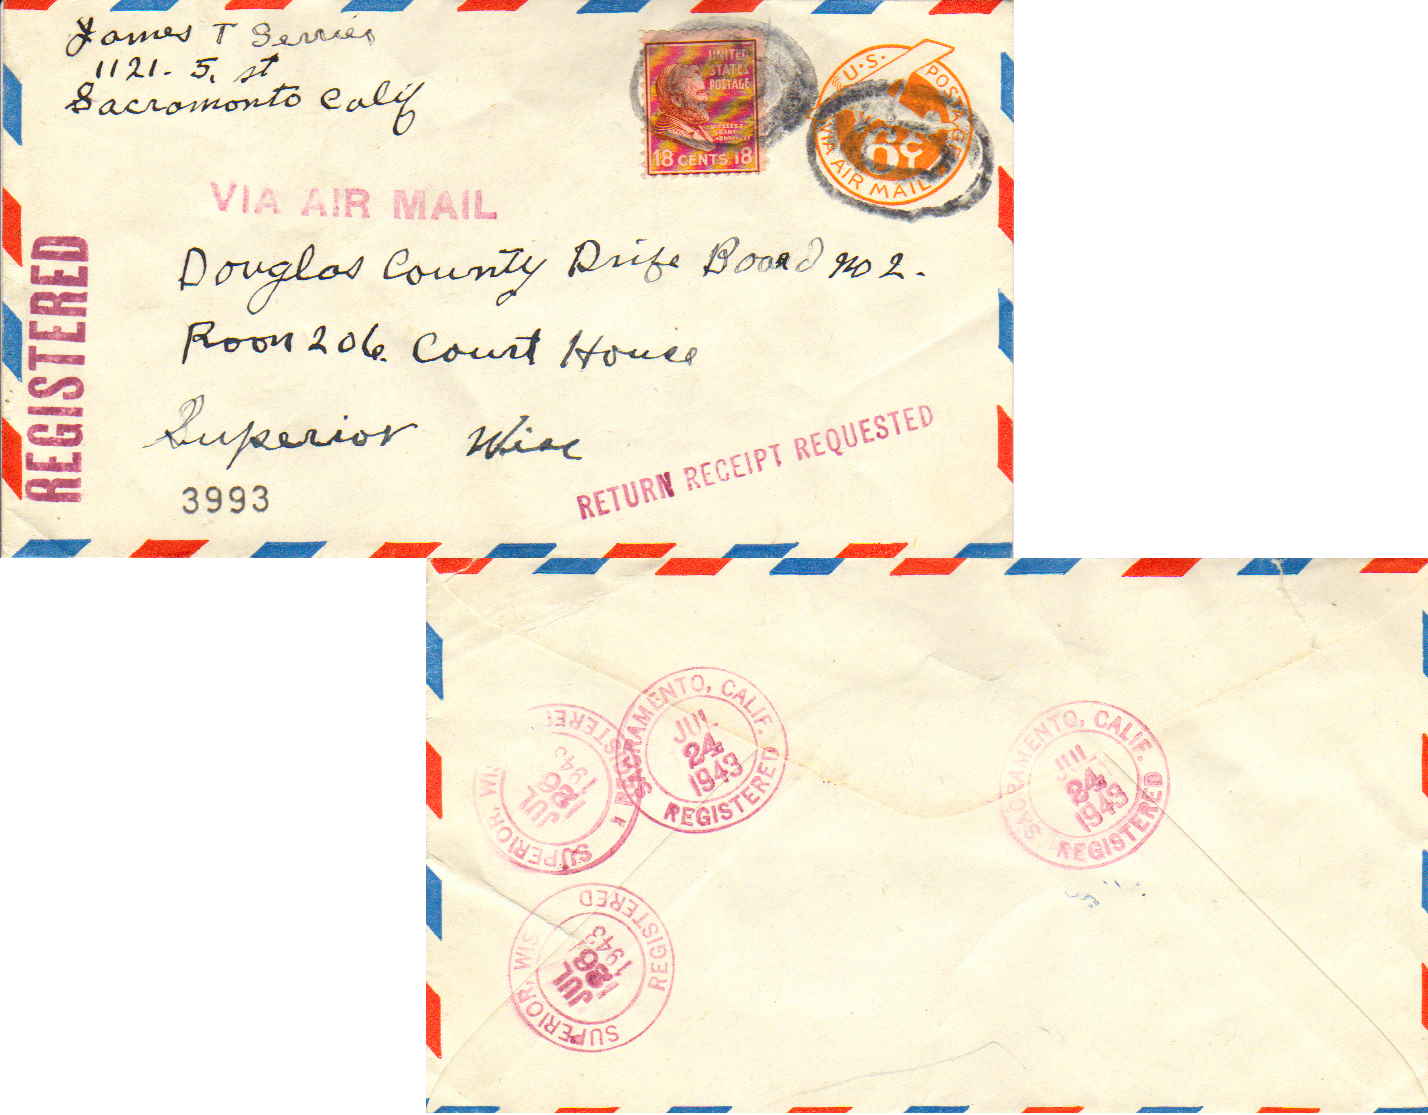 James T
1121. 5. st
Sacramonto Calif
UNITED
STATES
POSTAGE
18 CENTS 18
U.S. POSTAGE
VIA AIR MAIL
VIA AIR MAIL
REGISTERED
Douglas County Drife Board no 2.
Room 206. Court House
Superior Wisc
RETURN RECEIPT REQUESTED
3993
SACRAMENTO, CALIF.
JUL
24
1943
REGISTERED
SACRAMENTO, CALIF.
JUL
24
1943
REGISTERED
SUPERIOR, WIS
JUL
26
1943
REGISTERED
SUPERIOR, WIS
JUL
26
1943
REGISTERED